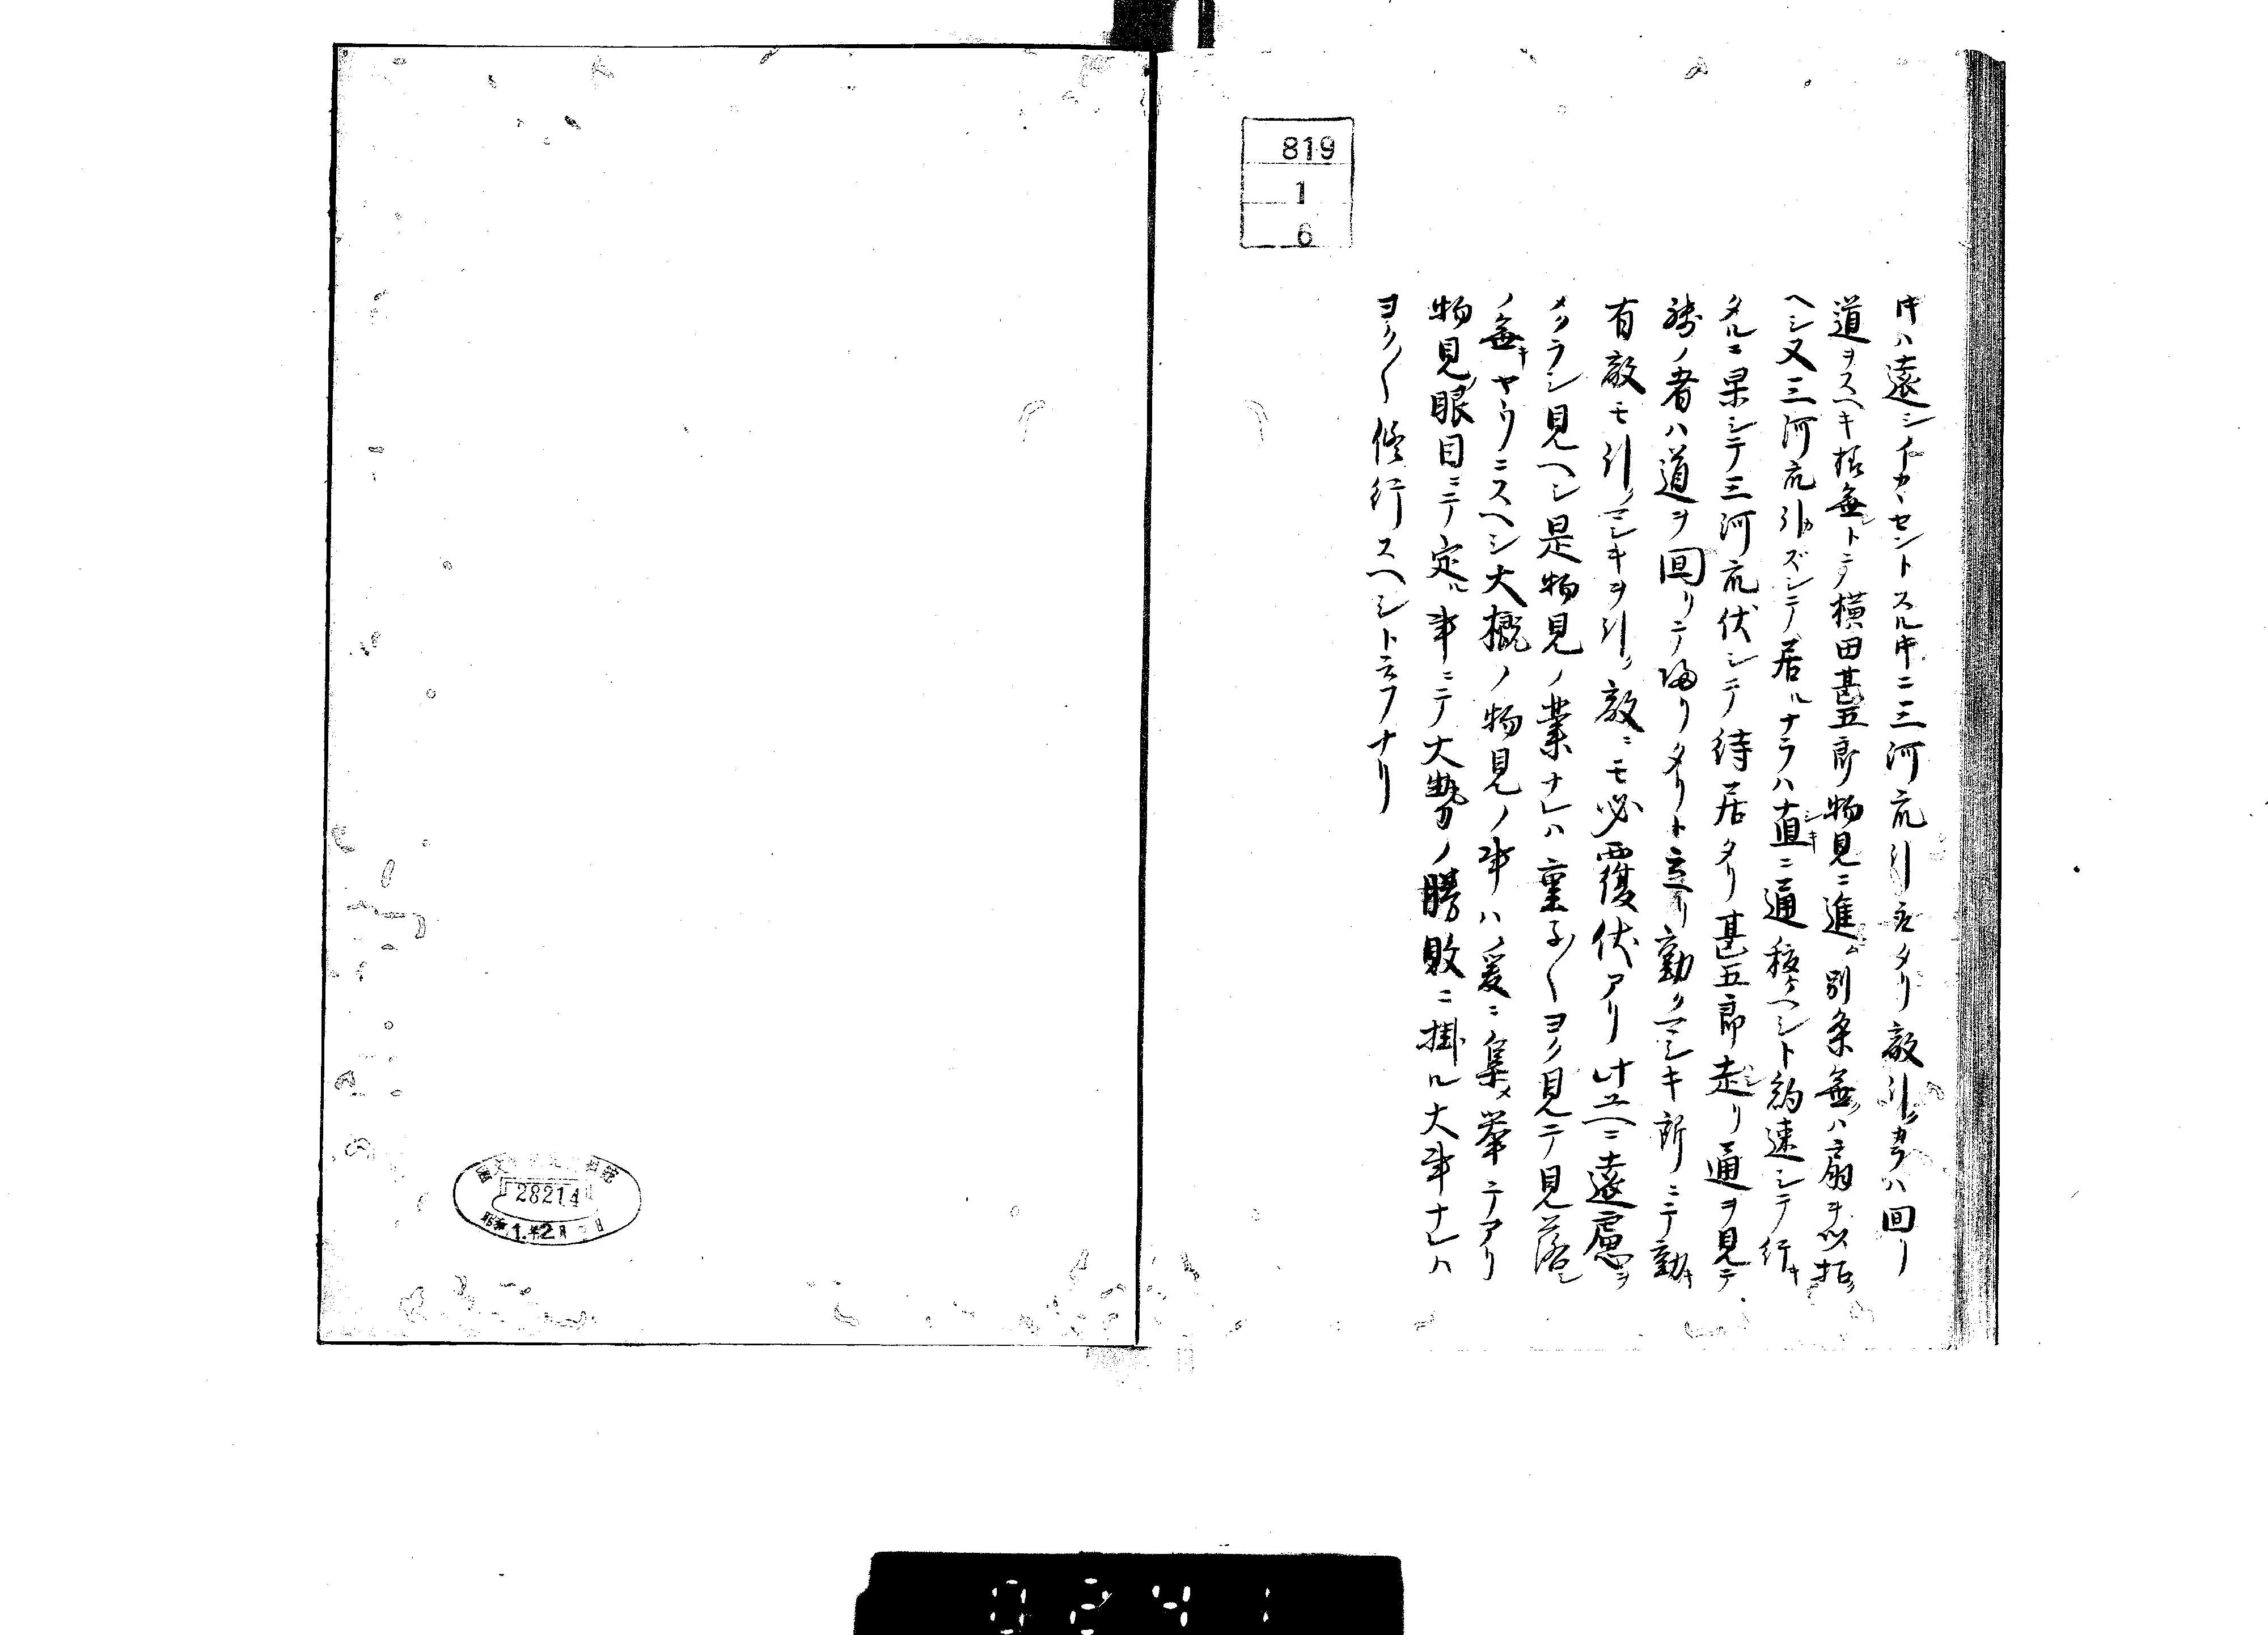 ハ遠シイカヽセントスル ニ三河 引 タリ敵引 ハ回リ
道ヲスヘキ 無シトテ横田甚五郎物見ニ進ム別条無クハ扇ヲ以招ク
ヘシ又三河 引カズシテ居ルナラハ直シキニ通 ヘシト約速シテ行キ
タルニ果シテ三河 伏シテ待居タリ甚五郎走リ通ヲ見テ
勝ノ者ハ道ヲ回リテ帰リタリト云リ動クマシキ所ニテ動キ
有敵モ引クマシキヲ引ク敵ニモ必覆伏アリ此ユヘニ遠慮ヲ
メクラシ見ヘシ是物見ノ業ナレハ重子〱ヨク見テ見落シ
ノ無キヤウニスヘシ大概ノ物見ノ事ハ爰ニ集メ挙テアリ
物見眼目ニテ定ル事ニテ大勢ノ勝敗ニ掛ル大事ナレハ
ヨク〱修行スヘシト云フナリ
819
1
6
28214
0241